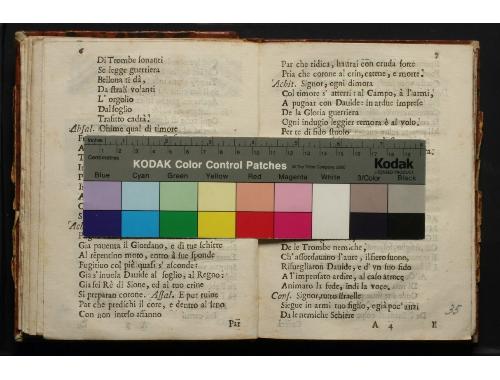 6
Di Trombe sonanti
Se legge guerriera
Bellona ti dà,
Da strali volanti
L' orgolio
Dal soglio
Trafitto cadrà!
Absal. Ohime qual di timore
Già paventa il Giordano, e di tue schiere
Al repentino moto, entro à sue sponde
Fugitivo col piè quasi s' asconde:
Già s' invola Davide al seglio, al Regno:
Già sei Rè di Sione, ed al tuo crine
Si preparan corone. Absal. E pur ruine
Par che predichi il core, e dentro al seno
Con non inteso affanno
Par
7
Par che ridica, havrai con cruda sorte
Pria che corone al crin, catene, e morte!
Achit. Signor, ogni dimora
Col timore s' atterri: al Campo, à l'armi,
A pugnar con Davide: in ardue imprese
De la Gloria guerriera
Ogni indugio leggier remora è al volo.
Per te di fido stuolo
De le Trombe nemiche,
Ch' assordavano l'aure, il fiero suono,
Risvegliaron Davide, e d' un suo fido
A l'impensato ardire, al caso atroce
Animaro la fede, indi la voce.
Cons. Signor, tutto Israelle
Siegue in armi tuo figlio, e già poc' anzi
Da le nemiche Schiere
A 4
E
35
Inches
Centimetres
KODAK Color Control Patches
© The Tiffen Company, 2000
Kodak
LICENSED PRODUCT
Blue Cyan Green Yellow Red Magenta White 3/Color Black